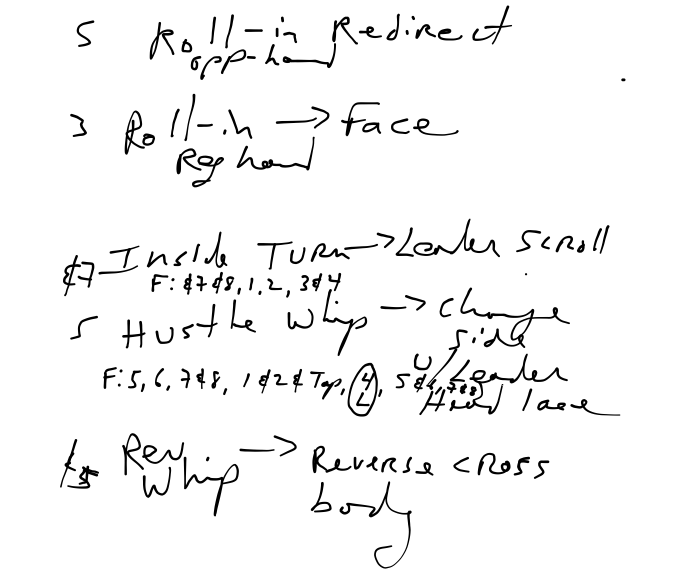 5 Roll-in Redirect
opp-hand
3 Roll-in → Face
Reg hand
&7 Inside Turn → Leader Scroll
F: &7&8, 1, 2, 3&4
5 Hustle Whip → change
side
F: 5, 6, 7&8, 1&2& Tap, 4, 5& 7&8
L
w/ Leader
Head lace
Rev → Reverse cross
Whip body